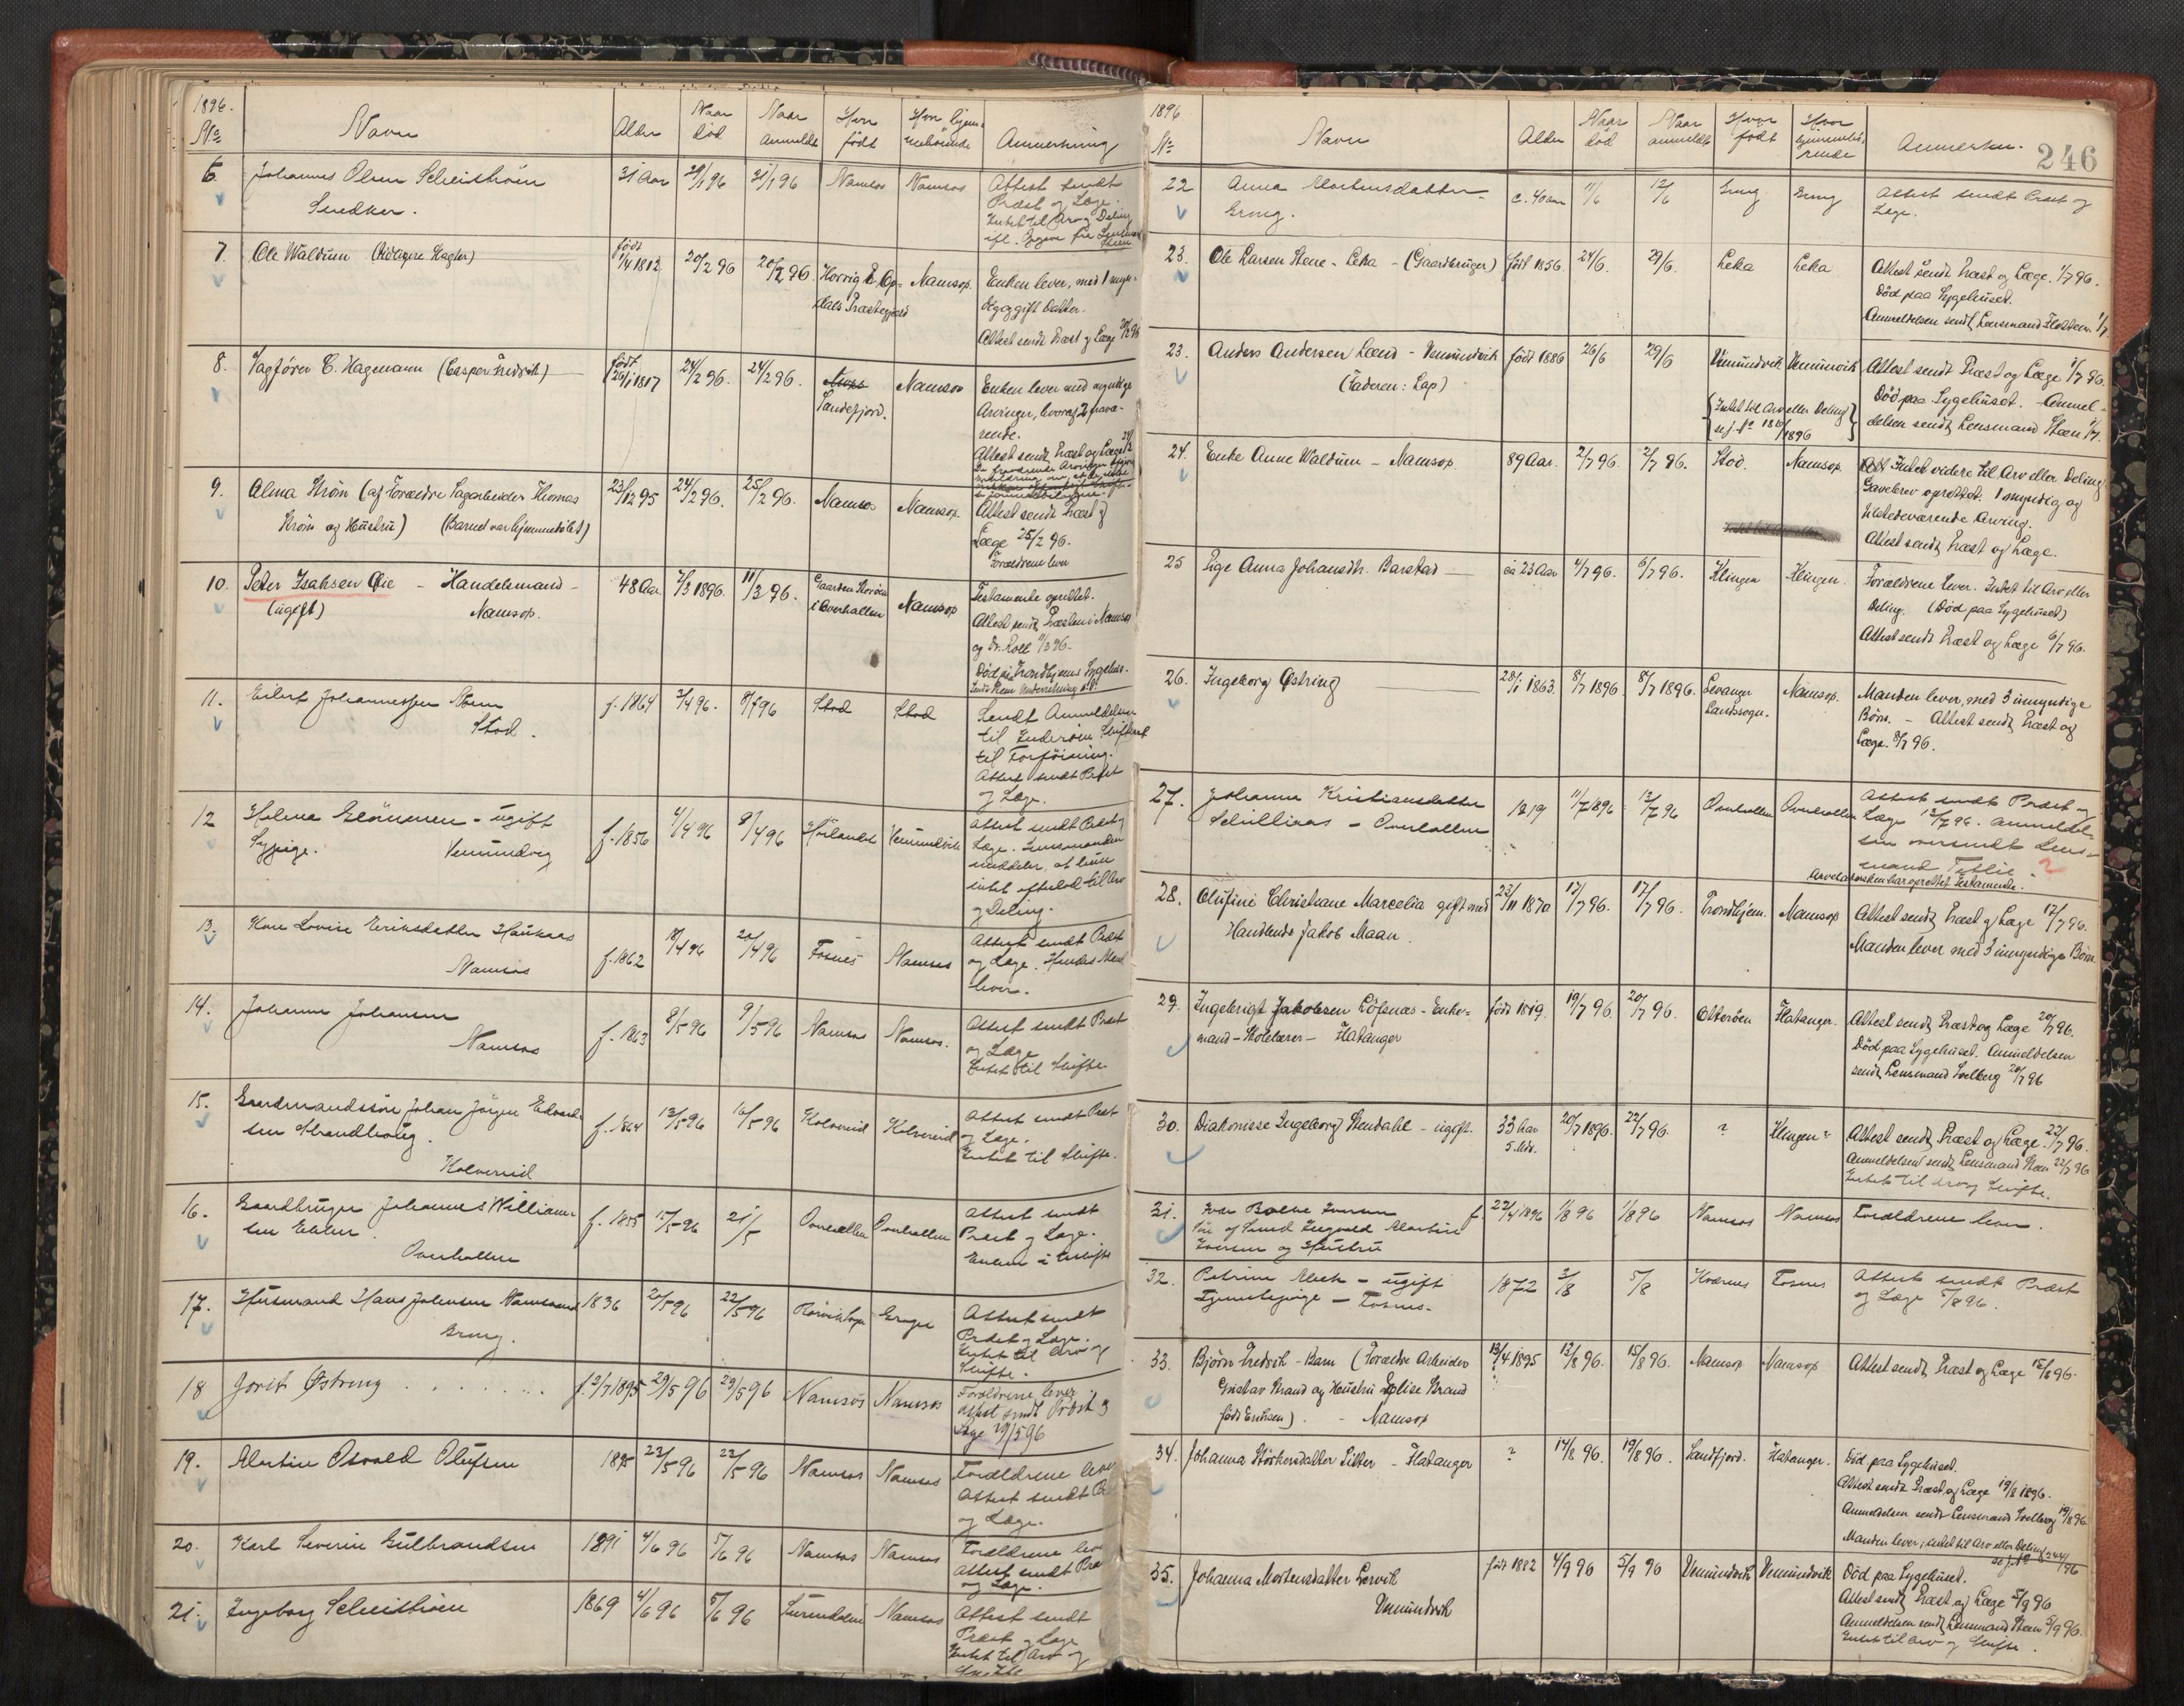 1896.
No
Navn
Alder
Naar død
Naar anmeldt
Hvor født
Hvor hjemmehørende
Anmerkning
6.
Johannes Olsen
31 Aar
31/1 96
Namsos
Namsos
Attest sendt
Præst og Læge.
Snedker.
Intet til Arv og Deling
7.
Ole Waldum
født
1812
20/2 96
20/2 96.
Namsos.
Enken lever, med 1 myn-
Datter.
Attest sendt Præst og Læge
8.
Sagfører C. Hagemann (Casper Fredrik)
født
26/1 1817
24/2 96.
24/2 96.
Sandefjord.
Namsos
Enken lever med myndige
Arvinger, hvoraf 2 fravæ-
rende.
Attest sendt Præst og Læge
9.
Alma Strøm (af Forældre Sagarbeider Thomas
Strøm og Hustru) (Barnet var hjemmedøbt)
23/12 95
24/2 96.
25/2 96.
Namsos
Namsos.
Attest sendt Præst og
Læge 25/2 96.
Forældrene lever
10.
Peter Isaksen Øie - Handelsmand -
(ugift) Namsos.
48 Aar
7/3 1896.
11/3 96.
Gaarden
i Overhallen
Namsos
Testamente oprettet.
Attest sendt Præsten i Namsos
og Dr. Roll 11/3 96.
Død paa Trondhjems Sygehus.
11.
Eilert Johannessen
Stod.
f. 1864
Stod
Stod
Sendt Anmeldelsen
til Inderøens Skifteret
til Forføining.
Attest sendt Præst
og Læge.
12
- ugift
Sypige. Vemundvig
f. 1856
4/4 96
8/4 96
Vemundvik
Attest sendt Præst og
Læge. Lensmanden
meddeler, at hun
intet efterlod til Arv
og Deling.
13.
Lovise Eriksdatter
Namsos
f. 1862
18/4 96
20/4 96
Fosnes
Namsos
Attest sendt Præst
og Læge. Hendes Mand
lever.
14.
Johansen
Namsos
f. 1863
8/5 96
9/5 96
Namsos
Namsos.
Attest sendt Præst
og Læge
Intet til Skifte
15.
Gaardmandssøn Johan Jørgen Edvard-
sen Strandhaug.
Kolvereid
f. 1864
13/5 96
16/5 96
Kolvereid
Kolvereid
Attest sendt Præst
og Læge.
Intet til Skifte.
16.
Gaardbruger Johannes William-
sen
Overhallen
f. 1855
15/5 96
21/5
Overhallen
Overhallen
Attest sendt
Præst og Læge.
Enken i Uskifte
17.
Husmand Hans Johnsen
Grong.
1836
20/5 96
22/5 96
Grong
Attest sendt
Præst og Læge.
Intet til Arv og
Skifte.
18
Jorit Østring
f. 2/7 1895
29/5 96
29/5 96
Namsos
Namsos
Forældrene lever
Attest sendt Præst og
Læge 29/5 96
19.
Martin Osvald Olufsen
1895
23/5 96
23/5 96
Namsos
Namsos
Forældrene lever
Attest sendt
og Læge.
20.
Karl Severin Gulbrandsen
1891
4/6 96
5/6 96
Namsos
Namsos
Forældrene
Attest sendt
og Læge.
21.
Ingeborg
1869
4/6 96
5/6 96
Namsos
Attest sendt
Præst og Læge
Intet til Arv og
Skifte
1896
No
Navn
Alder
Naar død
Naar anmeldt
Hvor født
Hvor hjemmehørende
Anmerkn.
246
22
Anna Mortensdatter
Grong.
c. 40 aar
11/6
12/6
Grong
Grong
Attest sendt Præst og
Læge.
23.
Ole Larsen - Leka - (Gaardbruger)
født 1856
24/6.
29/6.
Leka
Leka
Attest sendt Præst og Læge. 1/7 96.
Død paa Sygehuset.
Anmeldelsen sendt Lensmand 1/7
23.
Anders Andersen - Vemundvik
(Faderen: Lap)
født 1886
26/6
29/6
Vemundvik
Vemundvik
Attest sendt Præst og Læge 1/7 96.
Død paa Sygehuset. - Anmel-
delsen sendt Lensmand 1/7.
Intet til Arv eller Deling
1896
24.
Enke Anne Waldum - Namsos
89 Aar.
2/7 96.
2/7 96.
Stod.
Namsos.
Intet videre til Arv eller Deling
Gavebrev oprettet. 1 myndig og
tilstedeværende Arving.
Attest sendt Præst og Læge.
25
Pige Anna Johansdtr. Barstad
ca 23 Aar
4/7 96.
6/7 96.
Klingen
Klingen.
Forældrene lever. Intet til Arv eller
Deling. (Død paa Sygehuset)
Attest sendt Præst og Læge 6/7 96.
26.
Ingeborg Østring
28/1 1863.
8/7 1896
8/7 1896.
Levanger
Landssogn.
Namsos.
Manden lever, med 3 umyndige
Børn. - Attest sendt Præst og
Læge. 8/7 96.
27.
Johanna Kristiansdatter
- Overhallen
1819
11/7 1896
13/7 96
Overhallen
Overhallen
Attest sendt Præst og
Læge 13/7 96. Anmeldel-
sen oversendt Lens-
mand
har oprettet Testamente.
28.
Olufine Christiane Marcelia gift med
Handlende Jakob Maan.
23/11 1870
17/7 96.
17/7 96.
Trondhjem.
Namsos
Attest sendt Præst og Læge 17/7 96.
Manden lever med 3 umyndige Børn.
29.
Ingebrigt Jakobsen Løfsnæs - Enke-
mand - Skolelærer - Flatanger
født 1819.
19/7 96.
20/7 96.
Otterøen
Flatanger.
Attest sendt Præst og Læge 20/7 96.
Død paa Sygehuset. Anmeldelsen
sendt Lensmand Solberg 20/7 96
30.
Diakonisse Ingeborg Stendahl - ugift.
33 Aar
5 Mdr.
20/7 1896.
22/7 96.
?
Klingen?
Attest sendt Præst og Læge. 22/7 96.
Anmeldelsen sendt Lensmand 22/7 96
Intet til Arv og Skifte.
31.
Iversen
Søn af Smed Ingvald Martin
Iversen og Hustru
1896
1/8 96
1/8 96
Namsos
Namsos
Forældrene lever.
32.
Petrine - ugift
Tjenestepige - Fosnes.
1872
3/8
5/8
Fosnes
Attest sendt Præst
og Læge 5/8 96.
33.
Bjørn Fredrik - Barn (Forældre Arbeider
Gustav Strand og Hustru Elise Strand
født Eriksen). - Namsos
13/4 1895
13/8 96.
15/8 96.
Namsos
Namsos
Attest sendt Præst og Læge 15/8 96.
34.
Johanna Størkersdatter Sitter - Flatanger
?
14/8 96.
19/8 96.
Sandfjord.
Flatanger.
Død paa Sygehuset.
Attest sendt Præst og Læge 19/8 1896.
Anmeldelsen sendt Lensmand Solberg 19/8 96
Manden lever; intet til Arv eller Deling
35.
Johanna Mortensdatter Lervik
Vemundvik
født 1882
4/9 96
5/9 96
Vemundvik
Vemundvik
Død paa Sygehuset.
Attest sendt Præst og Læge 5/9 96
Anmeldelsen sendt Lensmand 5/9 96.
Intet til Arv og Skifte.